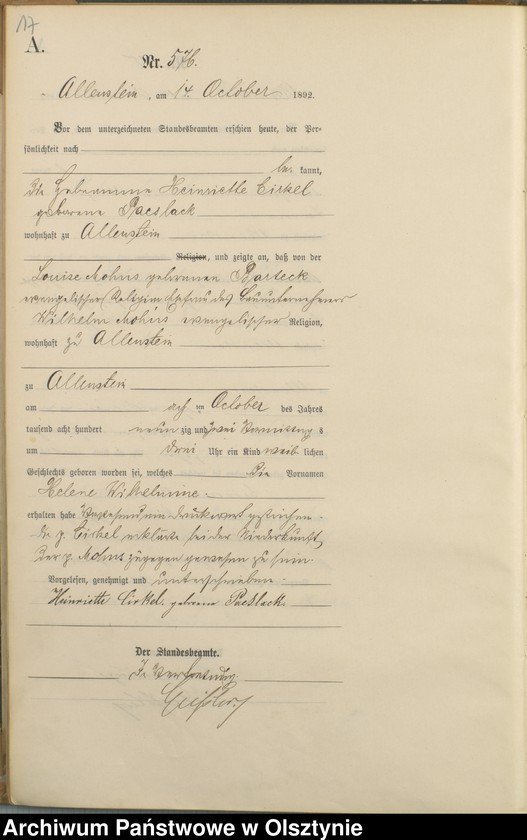 17
A.
Nr. 576.
Allenstein, am 14. October 1892.
Vor dem unterzeichneten Standesbeamten erschien heute, der Per-
sönlichkeit nach
be kannt,
die Hebeamme Heinriette Cirkel
geborene Packlack
wohnhaft zu Allenstein
Religion, und zeigte an, daß von der
Louise Mohns geborenen Barteck
evangelischer Religion Ehefrau des Bauunternehmers
Wilhelm Mohns evangelischer Religion,
wohnhaft zu Allenstein
zu Allenstein
am acht ten October des Jahres
tausend acht hundert neun zig und zwei Vormittags
um drei Uhr ein Kind weib lichen
Geschlechts geboren worden sei, welches die Vornamen
Helene Wilhelmine
erhalten habe Vorstehend ein Druckwort gestrichen.
Die p. Cirkel erklärte bei der Niederkunft
der p. Mohns zugegen gewesen zu sein.
Vorgelesen, genehmigt und unterschrieben.
Heinriette Cirkel. geborene Packlack.
Der Standesbeamte.
In Vertretung
Archiwum Państwowe w Olsztynie